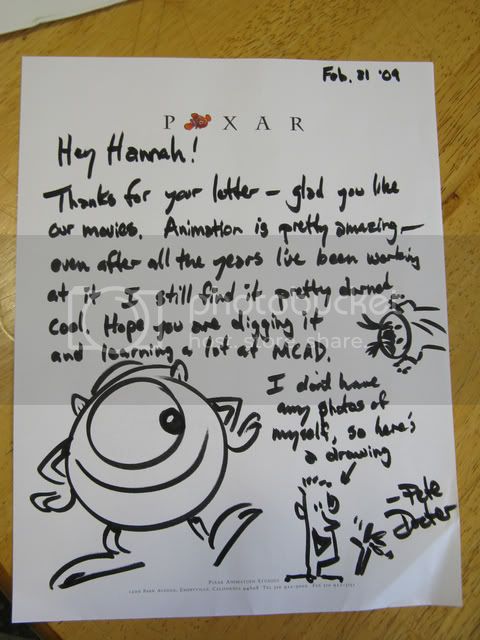 Feb. 21 '09
P XAR
Hey Hannah!
Thanks for your letter — glad you like
our movies. Animation is pretty amazing —
even after all the years I've been working
at it I still find it pretty darned
cool. Hope you are digging it
and learning a lot at MCAD.
photobucket
host. store. share.
I don't have
any photos of
myself, so here's
a drawing
— Pete
Docter
PIXAR ANIMATION STUDIOS
1200 PARK AVENUE, EMERYVILLE, CALIFORNIA 94608 TEL 510 922-3000 FAX 510 922-3151